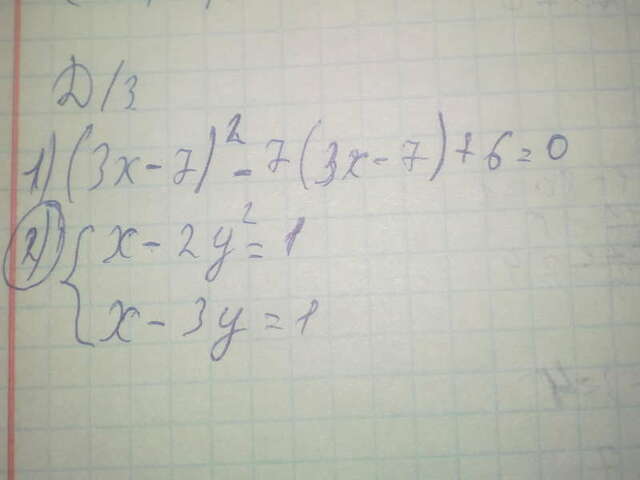 Д/З
1) (3x-7)² - 7(3x-7)+6=0
2) { x - 2y² = 1
x - 3y = 1